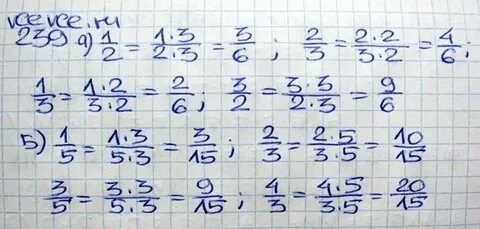 vcevce.ru
239 а) 1/2 = 1·3/2·3 = 3/6 ; 2/3 = 2·2/3·2 = 4/6 ;
1/3 = 1·2/3·2 = 2/6 ; 3/2 = 3·3/2·3 = 9/6
Б) 1/5 = 1·3/5·3 = 3/15 ; 2/3 = 2·5/3·5 = 10/15
3/5 = 3·3/5·3 = 9/15 ; 4/3 = 4·5/3·5 = 20/15